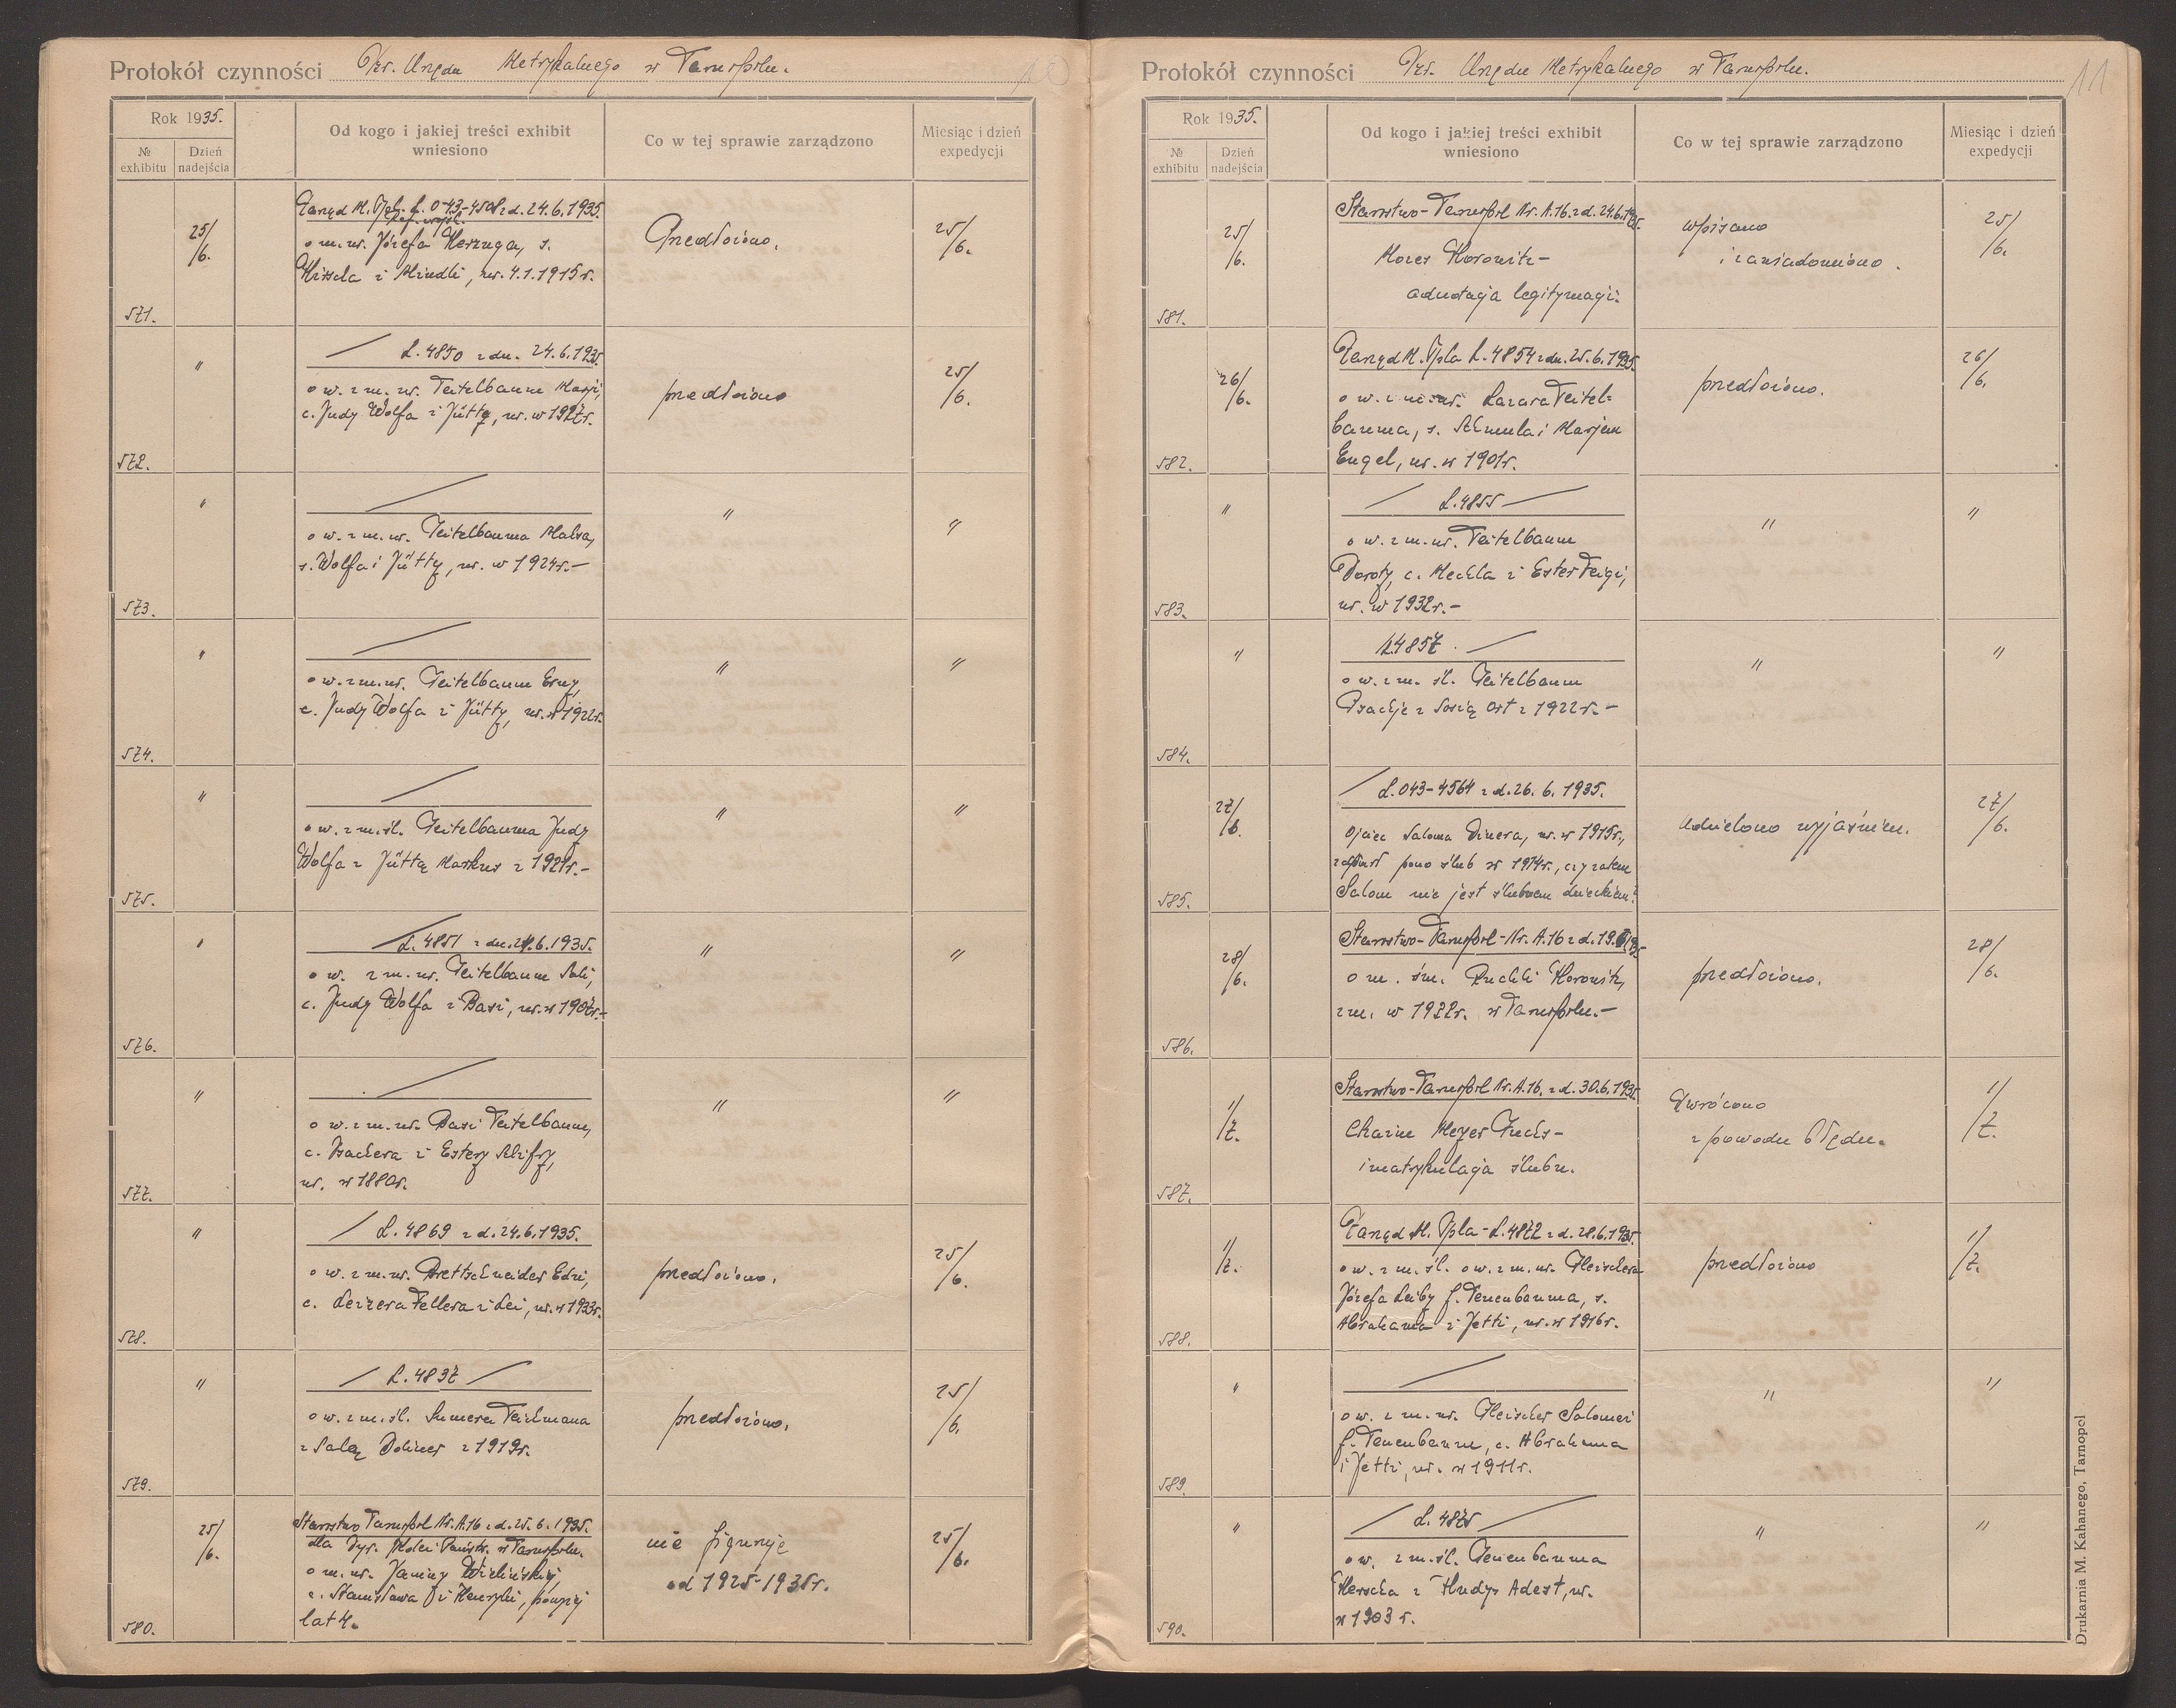 Protokół czynności Izr. Urzędu Metrykalnego w Tarnopolu.
Rok 1935.
№ exhibitu
Dzień nadejścia
Od kogo i jakiej treści exhibit
wniesiono
Co w tej sprawie zarządzono
Miesiąc i dzień
expedycji
571.
25/6.
Zarząd M. Tpl. L. 0-43-4508 z d. 24.6.1935.
o m. ur. Józefa Herzuga, s.
Hirscha i Mindli, ur. 4.1.1915r.
Przedłożono.
25/6.
572.
"
L. 4850 z dn. 24.6.1935.
o w. z m. ur. Teitelbaum Marji,
c. Judy Wolfa i Jütty, ur. w 1927r.
przedłożono
25/6.
573.
"
o w. z m. ur. Teitelbauma Maksa,
s. Wolfa i Jütty, ur. w 1924r.-
"
"
574.
"
o w. z m. ur. Teitelbaum Erny,
c. Judy Wolfa i Jütty, ur. w 1922r.
"
"
575.
"
o w. z m. śl. Teitelbauma Judy
Wolfa z Jüttą Markus z 1921r.-
"
"
576.
"
L. 4851 z dn. 24.6.1935.
o w. z m. ur. Teitelbaum Sali,
c. Judy Wolfa i Basi, ur. w 1907r.-
"
"
577.
"
o w. z m. ur. Basi Teitelbaum,
c. Isachera i Estery
ur. w 1880r.
"
"
578.
"
L. 4869 z d. 24.6.1935.
o w. z m. ur. Brettschneider Edzi,
c. Leizera Fellera i Lei, ur. w 1933r.
przedłożono.
25/6.
579.
"
L. 4837
o w. z m. śl. Sumera Teichmana
z Salą Doliner z 1919r.
przedłożono.
25/6.
580.
25/6.
Starostwo Tarnopol Nr. A.16 z d. 25.6.1935.
dla Dyr. Kolei Państw. w Tarnopolu.
o m. ur. Janiny
c. Stanisława i Henryki, powyżej
lat 4.
nie figuruje
od 1925-1935r.
25/6.
Protokół czynności Izr. Urzędu Metrykalnego w Tarnopolu.
11
Rok 1935.
№ exhibitu
Dzień nadejścia
Od kogo i jakiej treści exhibit
wniesiono
Co w tej sprawie zarządzono
Miesiąc i dzień
expedycji
581.
25/6.
Starostwo-Tarnopol Nr. A.16 z d. 24.6.1935.
Mozes Horowitz-
adnotacja legitymacji.
wpisano
i zawiadomiono.
25/6.
582.
26/6.
Zarząd M. Tpla L. 4854 z dn. 25.6.1935.
o w. z m. ur. Lazara Teitel-
bauma, s. Schmula i Marjem
Engel, ur. w 1901r.
przedłożono.
26/6.
583.
"
L. 4855
o w. z m. ur. Teitelbaum
Doroty, c. Mechla i Ester Feigi,
ur. w 1932r.-
"
"
584.
"
L. 4857.
o w. z m. śl. Teitelbaum
z Sosią Ost z 1922r.-
"
"
585.
27/6.
L. 043-4564 z d. 26.6.1935.
Ojciec Saloma Dinera, ur. w 1915r.,
zawarł pono ślub w 1914r., czy zatem
Salom nie jest ślubnem dzieckiem?
udzielono wyjaśnień.
27/6.
586.
28/6.
Starostwo-Tarnopol-Nr. A.16 z d. 19.6.1935
o m. śm. Ruchli Horowitz,
zm. w 1922r. w Tarnopolu.-
przedłożono.
28/6.
587.
1/7.
Starostwo-Tarnopol Nr. A.16. z d. 30.6.1935
Chaim Meyer Fuchs-
imatrykulacja ślubu.
Zwrócono
z powodu błędu.
1/7.
588.
1/7.
Zarząd M. Tpla-L. 4872 z d. 28.6.1935.
o w. z m. śl. o w. z m. ur. Fleischera
Józefa Leiby f. Tenenbauma, s.
Abrahama i Jetti, ur. w 1916r.
przedłożono
1/7.
589.
"
o w. z m. ur. Fleischer Salomei
f. Tenenbaum, c. Abrahama
i Jetti, ur. w 1911r.
"
"
590.
"
L. 4875
o w. z m. śl. Tenenbauma
Herscha z Hudys Adest, ur.
w 1903r.
"
"
Drukarnia M. Kahanego, Tarnopol